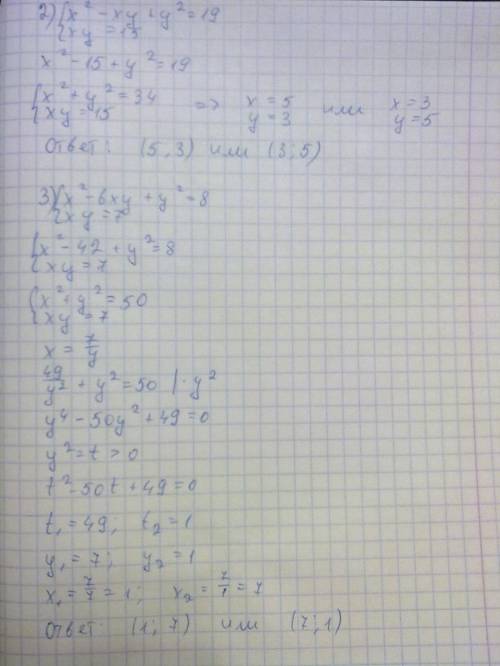 2) {x² - xy + y² = 19
{xy = 15
x² - 15 + y² = 19
{x² + y² = 34
{xy = 15 => x = 5 y = 3 или x = 3 y = 5
Ответ: (5; 3) или (3; 5)
3) {x² - 6xy + y² = 8
{xy = 7
{x² - 42 + y² = 8
{xy = 7
{x² + y² = 50
{xy = 7
x = 7/y
49/y² + y² = 50 | · y²
y⁴ - 50y² + 49 = 0
y² = t > 0
t² - 50t + 49 = 0
t₁ = 49; t₂ = 1
y₁ = 7; y₂ = 1
x₁ = 7/7 = 1; x₂ = 7/1 = 7
Ответ: (1; 7) или (7; 1)